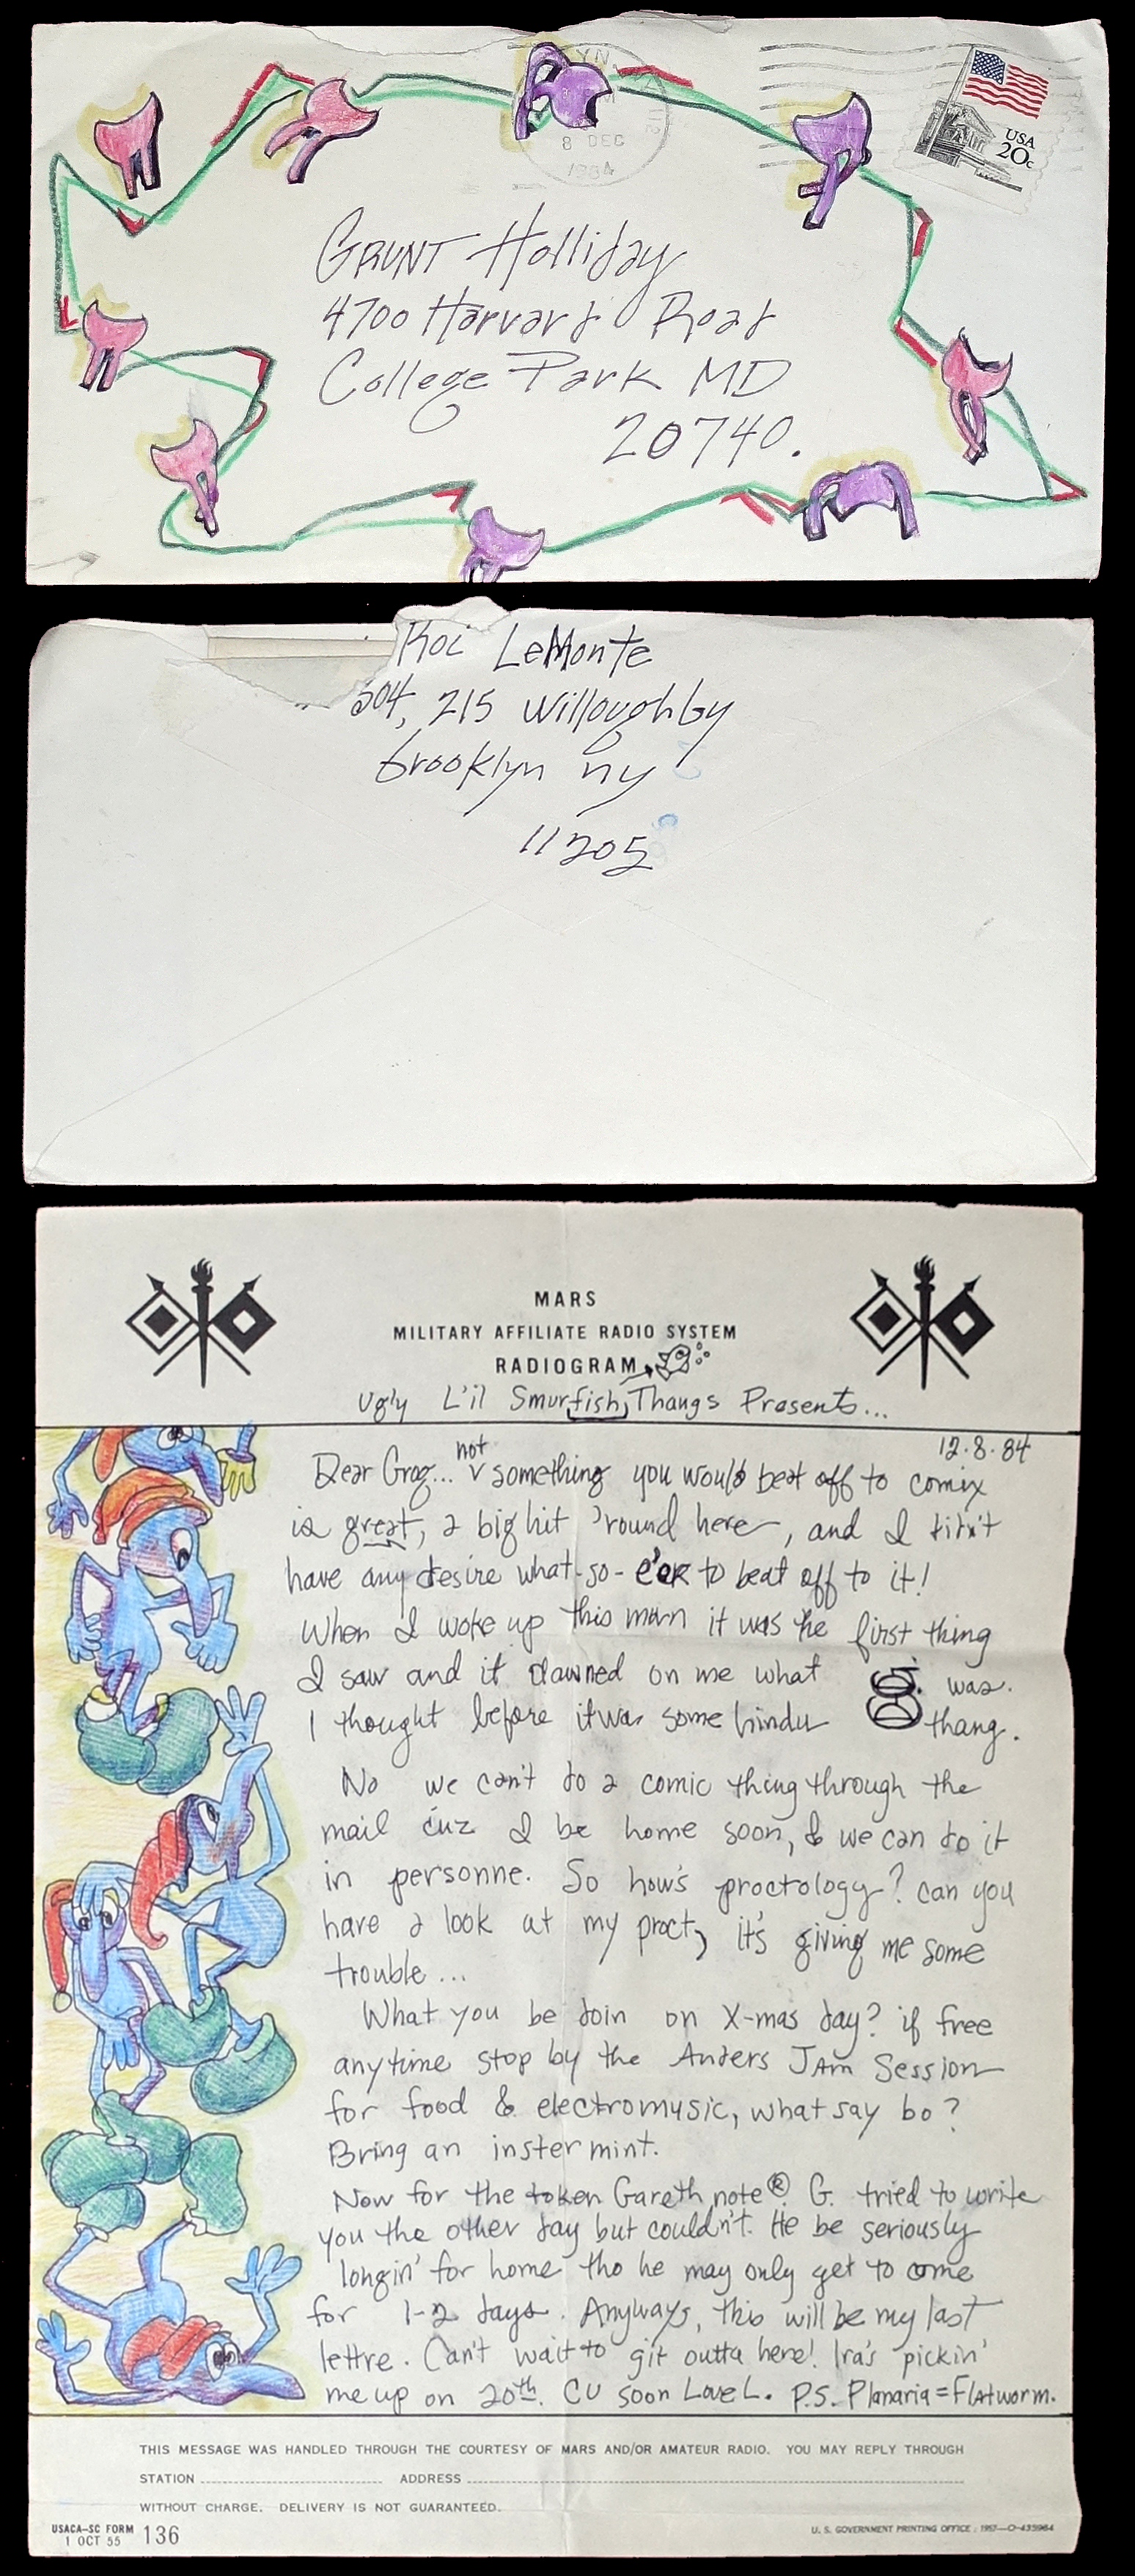 YN,
8 DEC
1984
USA
20c
GRUNT Holliday
4700 Harvard Road
College Park MD
20740.
Roi LeMonte
504, 215 Willoughby
brooklyn ny
11205
MARS
MILITARY AFFILIATE RADIO SYSTEM
RADIOGRAM
Ugly L'il Smurfish Thangs Presents...
12.8.84
Dear Greg... not something you would beat off to comix
is great, a big hit 'round here, and I didn't
have any desire what-so-e'er to beat off to it!
When I woke up this morn it was the first thing
I saw and it dawned on me what was.
I thought before it was some hindu thang.
No we can't do a comic thing through the
mail cuz I be home soon, & we can do it
in personne. So how's proctology? can you
have a look at my proct, it's giving me some
trouble...
What you be doin on X-mas day? if free
anytime stop by the Anders JAm Session
for food & electromusic, what say bo?
Bring an instermint.
Now for the token Gareth note®. G. tried to write
you the other day but couldn't. He be seriously
longin' for home tho he may only get to come
for 1-2 days. Anyways, this will be my last
lettre. Can't wait to git outta here! Ira's pickin'
me up on 20th. CU soon Love L. P.S. Planaria=FlAtworm.
THIS MESSAGE WAS HANDLED THROUGH THE COURTESY OF MARS AND/OR AMATEUR RADIO. YOU MAY REPLY THROUGH
STATION ADDRESS
WITHOUT CHARGE. DELIVERY IS NOT GUARANTEED.
USACA-SC FORM 136
1 OCT 55
U. S. GOVERNMENT PRINTING OFFICE : 1957—O-435964